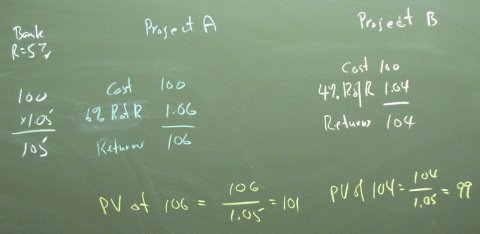 Bank
R=5%
100
x1.05
105
Project A
Cost 100
6% RofR 1.06
Return 106
PV of 106 = 106/1.05 = 101
Project B
Cost 100
4% RofR 1.04
Return 104
PV of 104 = 104/1.05 = 99